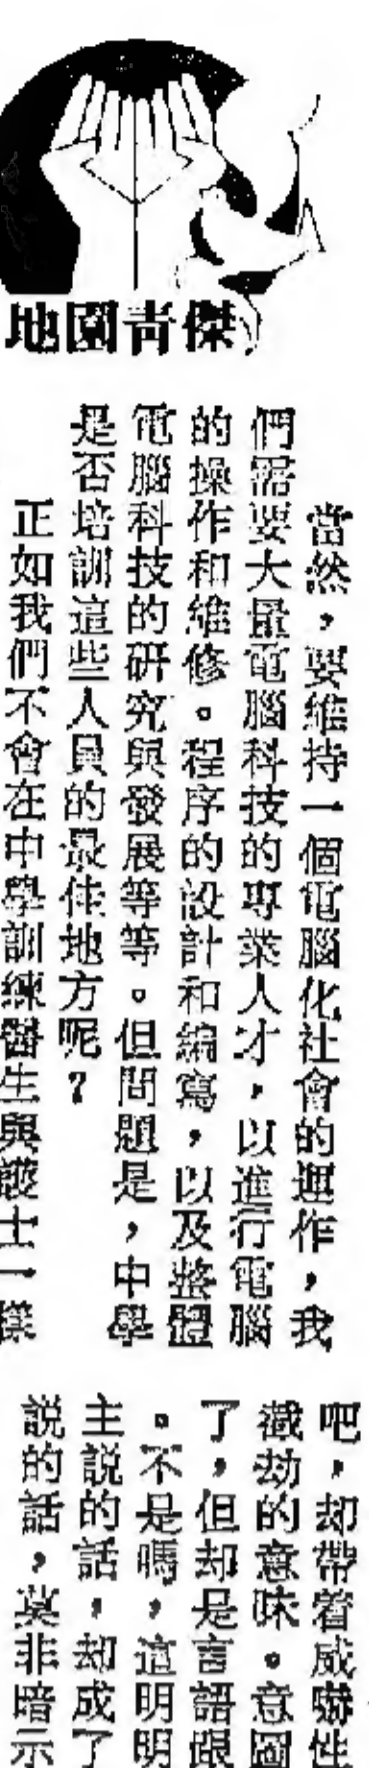 傑青園地
當然，要維持一個電腦化社會的運作，我
們需要大量電腦科技的專業人才，以進行電腦
的操作和維修。程序的設計和編寫，以及整體
電腦科技的研究與發展等等。但問題是，中學
是否培訓這些人員的最佳地方呢？
正如我們不會在中學訓練醫生與護士一樣
吧，却帶着威嚇性
劫的意味。意圖
了，但却是言語跟
。不是嗎，這明明
主説的話，却成了
説的話，莫非暗示